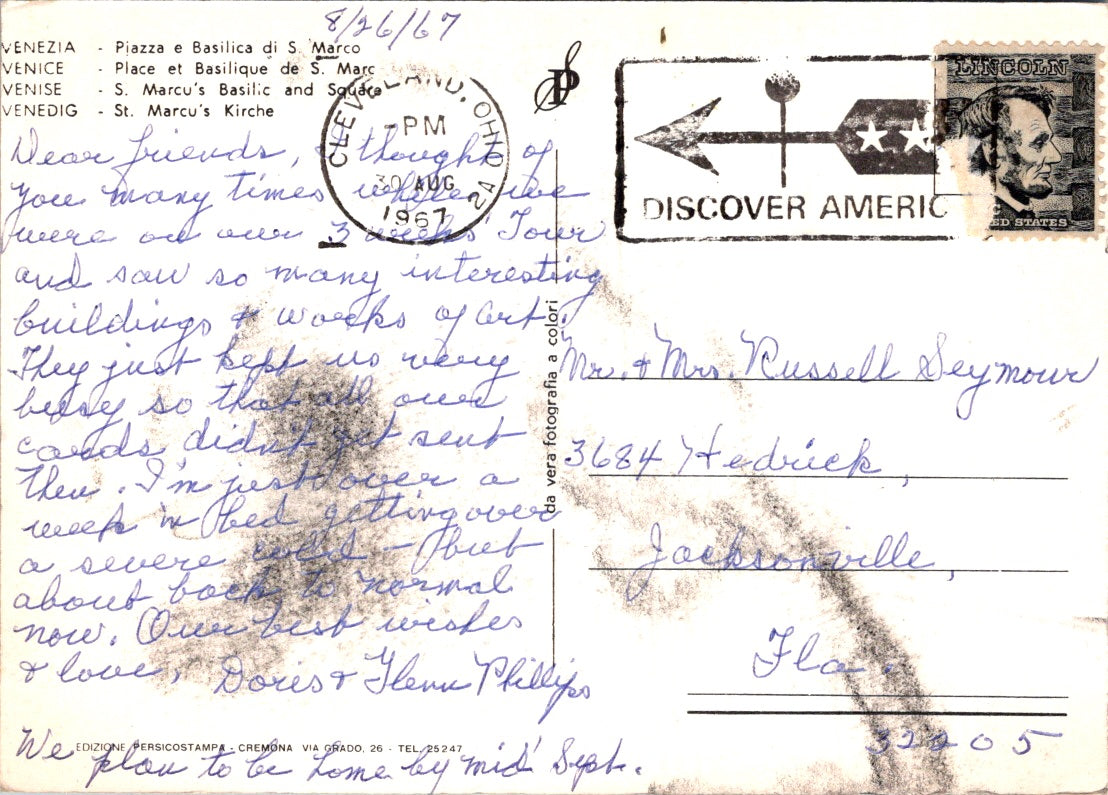 8/26/67
VENEZIA - Piazza e Basilica di S. Marco
VENICE - Place et Basilique de S. Marc
VENISE - S. Marcu's Basilic and Square
VENEDIG - St. Marcu's Kirche
CLEVELAND, OHIO
PM
30 AUG
1967
2A
DISCOVER AMERIC
LINCOLN
ED STATES
Dear friends, I thought of
you many times while we
were on our 3 weeks Tour
and saw so many interesting
buildings & works of art.
They just kept us very
busy so that all our
cards didn't get sent
then. I'm just over a
week in bed getting over
a severe cold - but
about back to normal
now. Our best wishes
& love, Doris & Glenn Phillips
We plan to be home by mid Sept.
EDIZIONE PERSICOSTAMPA - CREMONA VIA GRADO, 26 - TEL. 25247
da vera fotografia a colori
Mr. & Mrs. Russell Seymour
3684 Hedrick,
Jacksonville,
Fla.
32205